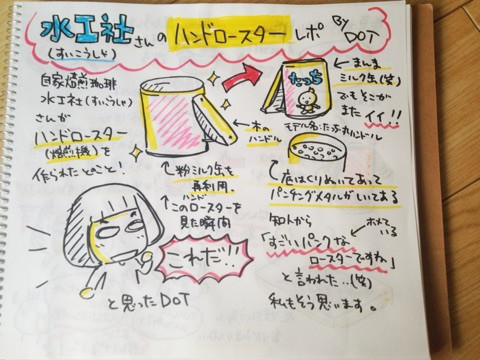 水工社さんのハンドロースターレポ By DOT
(すいこうしゃ)
自家焙煎珈琲
水工社(すいこうしゃ)
さんが
ハンドロースター
(焙煎機)を
作られたとのこと!
↑粉ミルク缶を
再利用。
木の
ハンドル
たっち
←まんま
ミルク缶(笑)
でもそこが
また
イイ!!
モデル名:たっち丸ハンドル
↑底はくりぬいてあって
パンチングメタルがしいてある
↑このハンドロースターを
見た瞬間
これだ!!
と思ったDOT
知人から
ホメて
いる
「すごいパンクな
ロースターですね」
と言われた‥(笑)
私もそう思います。